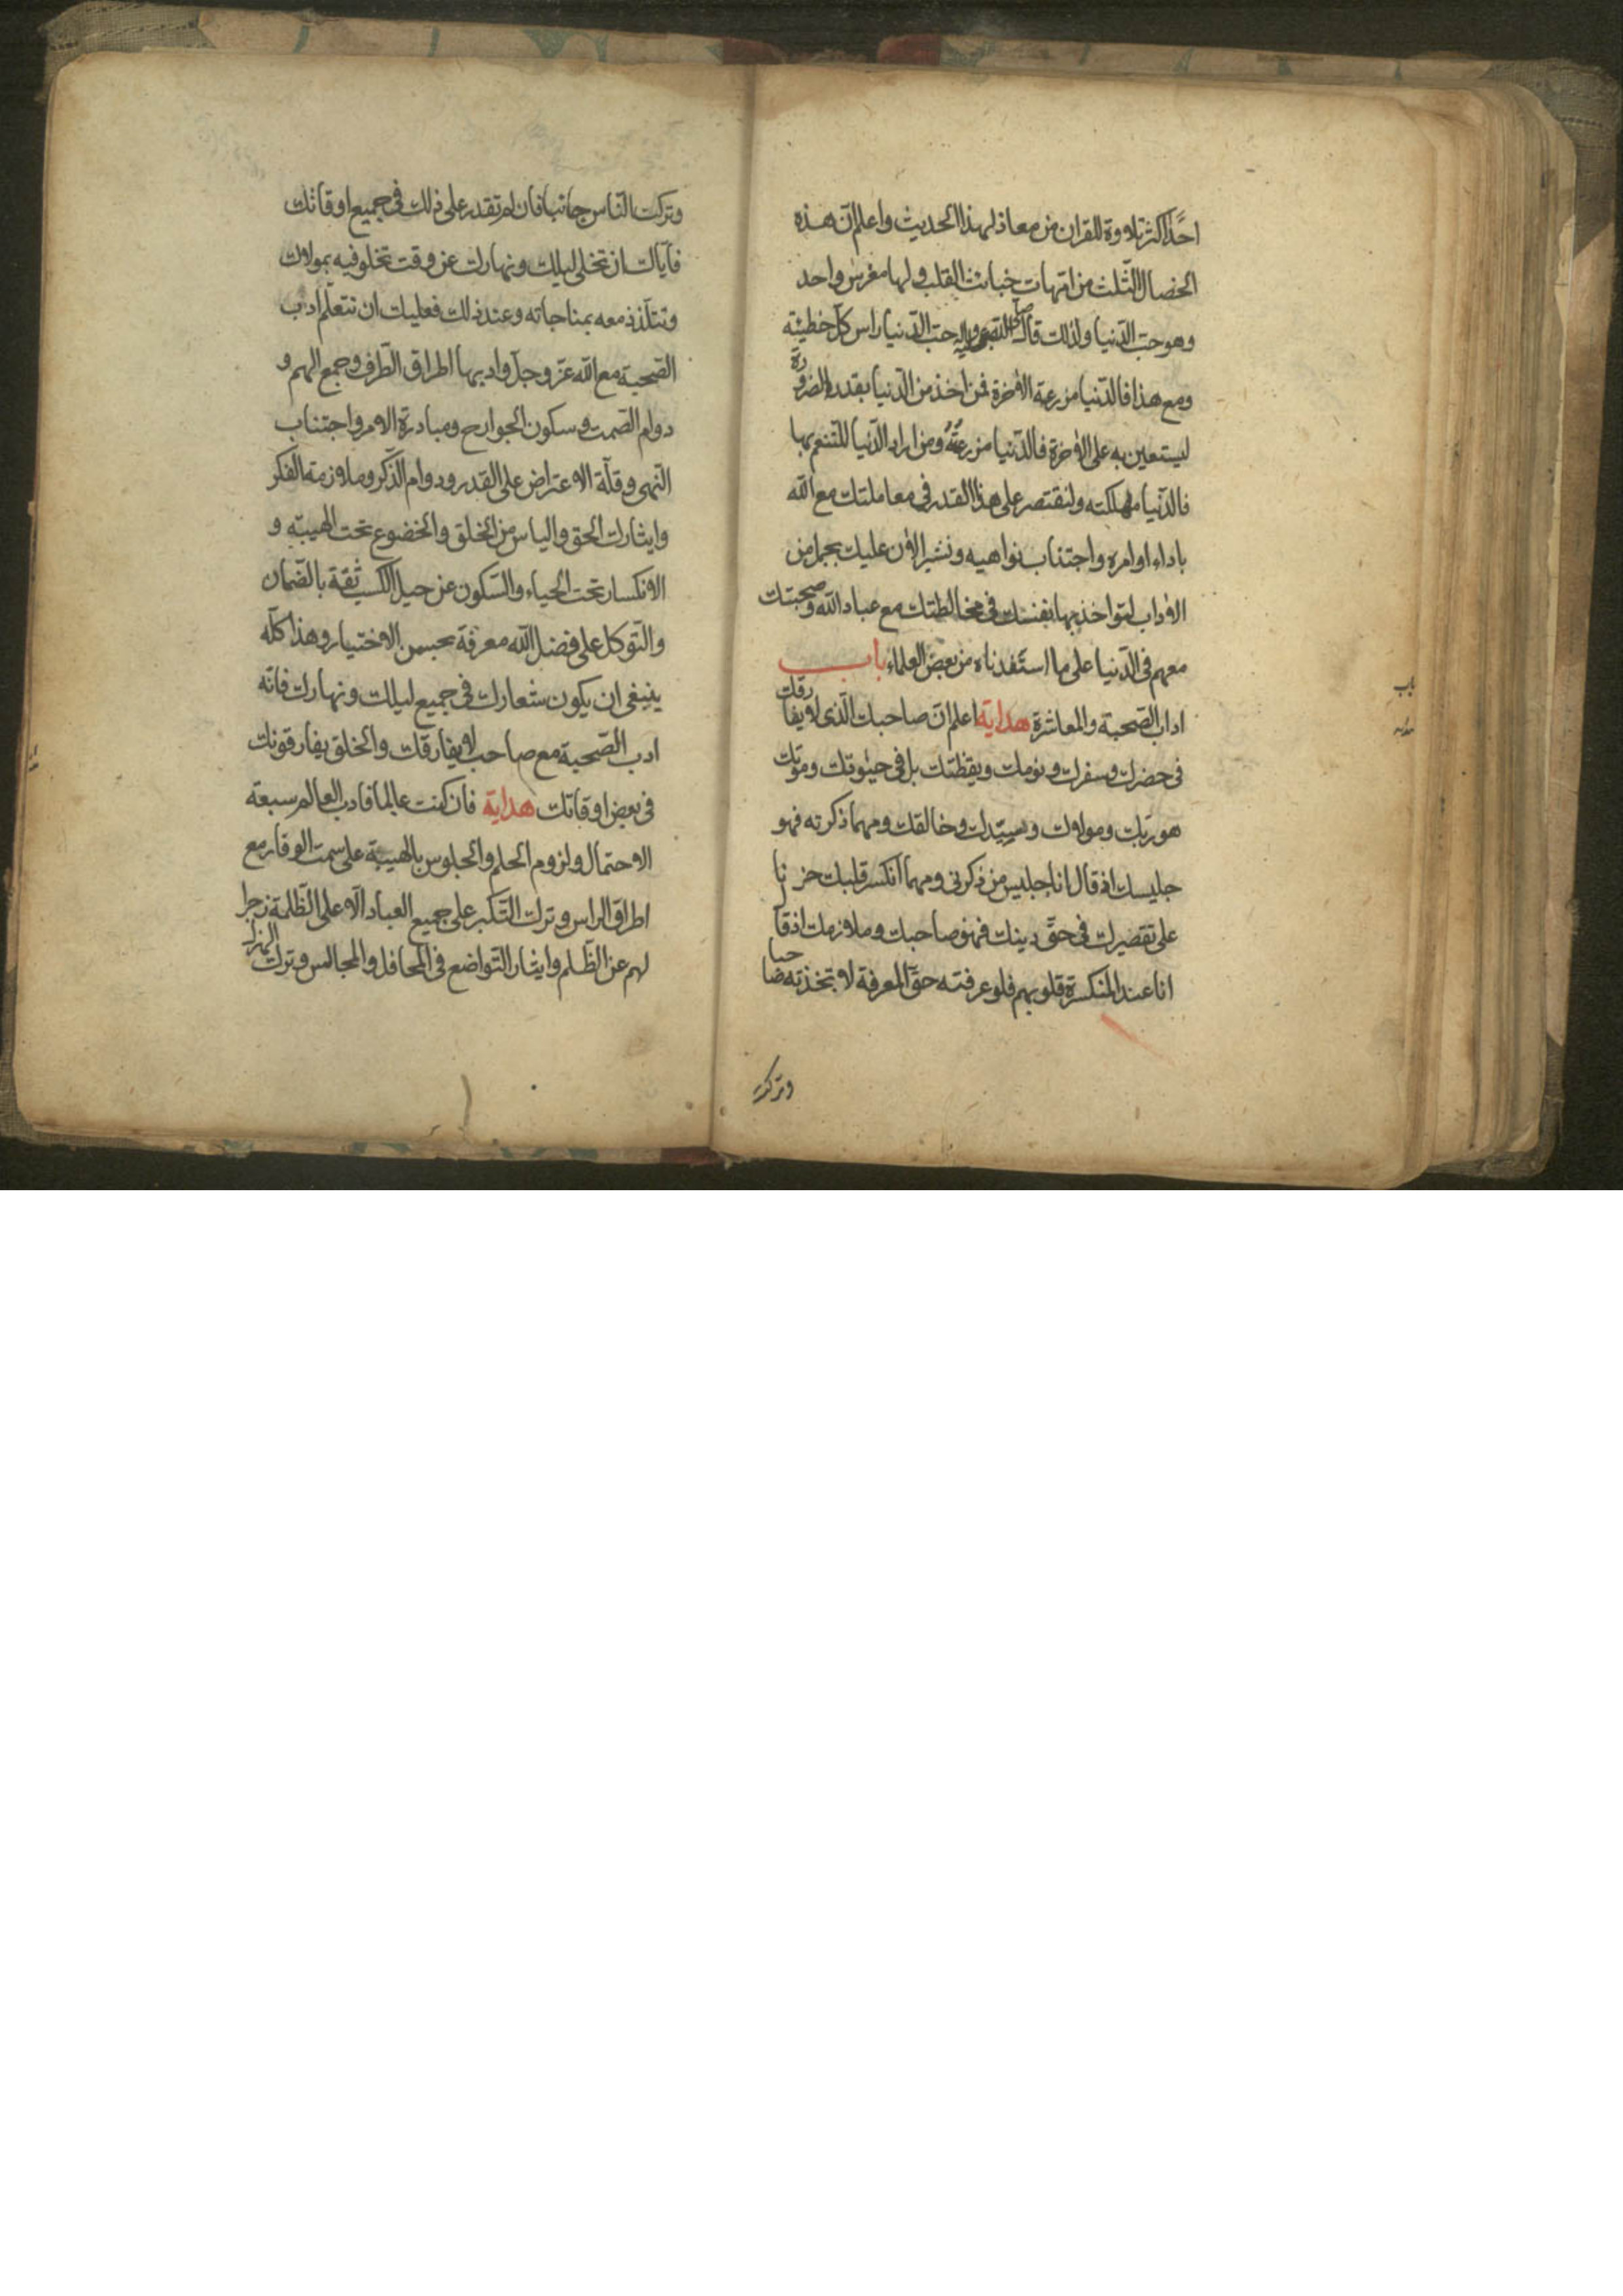 احدًا اكثر تلاوة للقران من معاذ لهذا الحديث واعلم ان هذه
الخصال الثلث من امهات خبائث القلب ولها مغرس واحد
وهو حب الدنيا ولذلك قال النبي حب الدنيا راس كل خطيئة
ومع هذا فالدنيا مزرعة الاخرة فمن اخذ من الدنيا بقدر الضرورة
ليستعين به على الاخرة فالدنيا مزرعته ومن اراد الدنيا للتنعم بها
فالدنيا مهلكته ولنقتصر على هذا القدر في معاملتك مع الله
باداء اوامره واجتناب نواهيه ونشير الان عليك بجمل من
الاداب لتواخذ بها نفسك في مخالطتك مع عباد الله وصحبتك
معهم في الدنيا على ما استفدناه من بعض العلماء باب
اداب الصحبة والمعاشرة هداية اعلم ان صاحبك الذى لا يفارقك
في حضرك وسفرك ونومك ويقظتك بل في حيوتك وموتك
هو ربك ومولاك وسيدك وخالقك ومهما ذكرته فهو
جليسك اذ قال انا جليس من ذكرني ومهما انكسر قلبك حزنا
على تقصيرك في حق دينك فهو صاحبك وملازمك اذ قا
انا عند المنكسرة قلوبهم فلو عرفته حق المعرفة لا تخذته صاحبا
وتركت
باب
هدايه
وتركت الناس جانبا فان لم تقدر على ذلك في جميع اوقاتك
فاياك ان تخلى ليلك ونهارك عن وقت تخلو فيه بمولاك
وتتلذذ معه بمناجاته وعند ذلك فعليك ان تتعلم ادب
الصحبة مع الله عز وجل وادبها اطراق الطرف وجمع الهم و
دوام الصمت وسكون الجوارح ومبادرة الامر واجتناب
النهى وقلة الاعتراض على القدر ودوام الذكر وملازمة الفكر
وايثارك الحق والياس من الخلق والخضوع تحت الهيبة و
الانكسار تحت الحياء والسكون عن حيل الكسب ثقة بالضمان
والتوكل على فضل الله معرفة بحسن الاختيار وهذا كله
ينبغي ان يكون شعارك في جميع ليلك ونهارك فانه
ادب الصحبة مع صاحب لا يفارقك والخلق يفارقونك
في بعض اوقاتك هداية فان كنت عالما فادب العالم سبعة
الاحتمال ولزوم الحلم والجلوس بالهيبة على سمت الوقار مع
اطراق الراس وترك التكبر على جميع العباد الا على الظلمة زجرا
لهم عن الظلم وايثار التواضع في المحافل والمجالس وترك الهزل